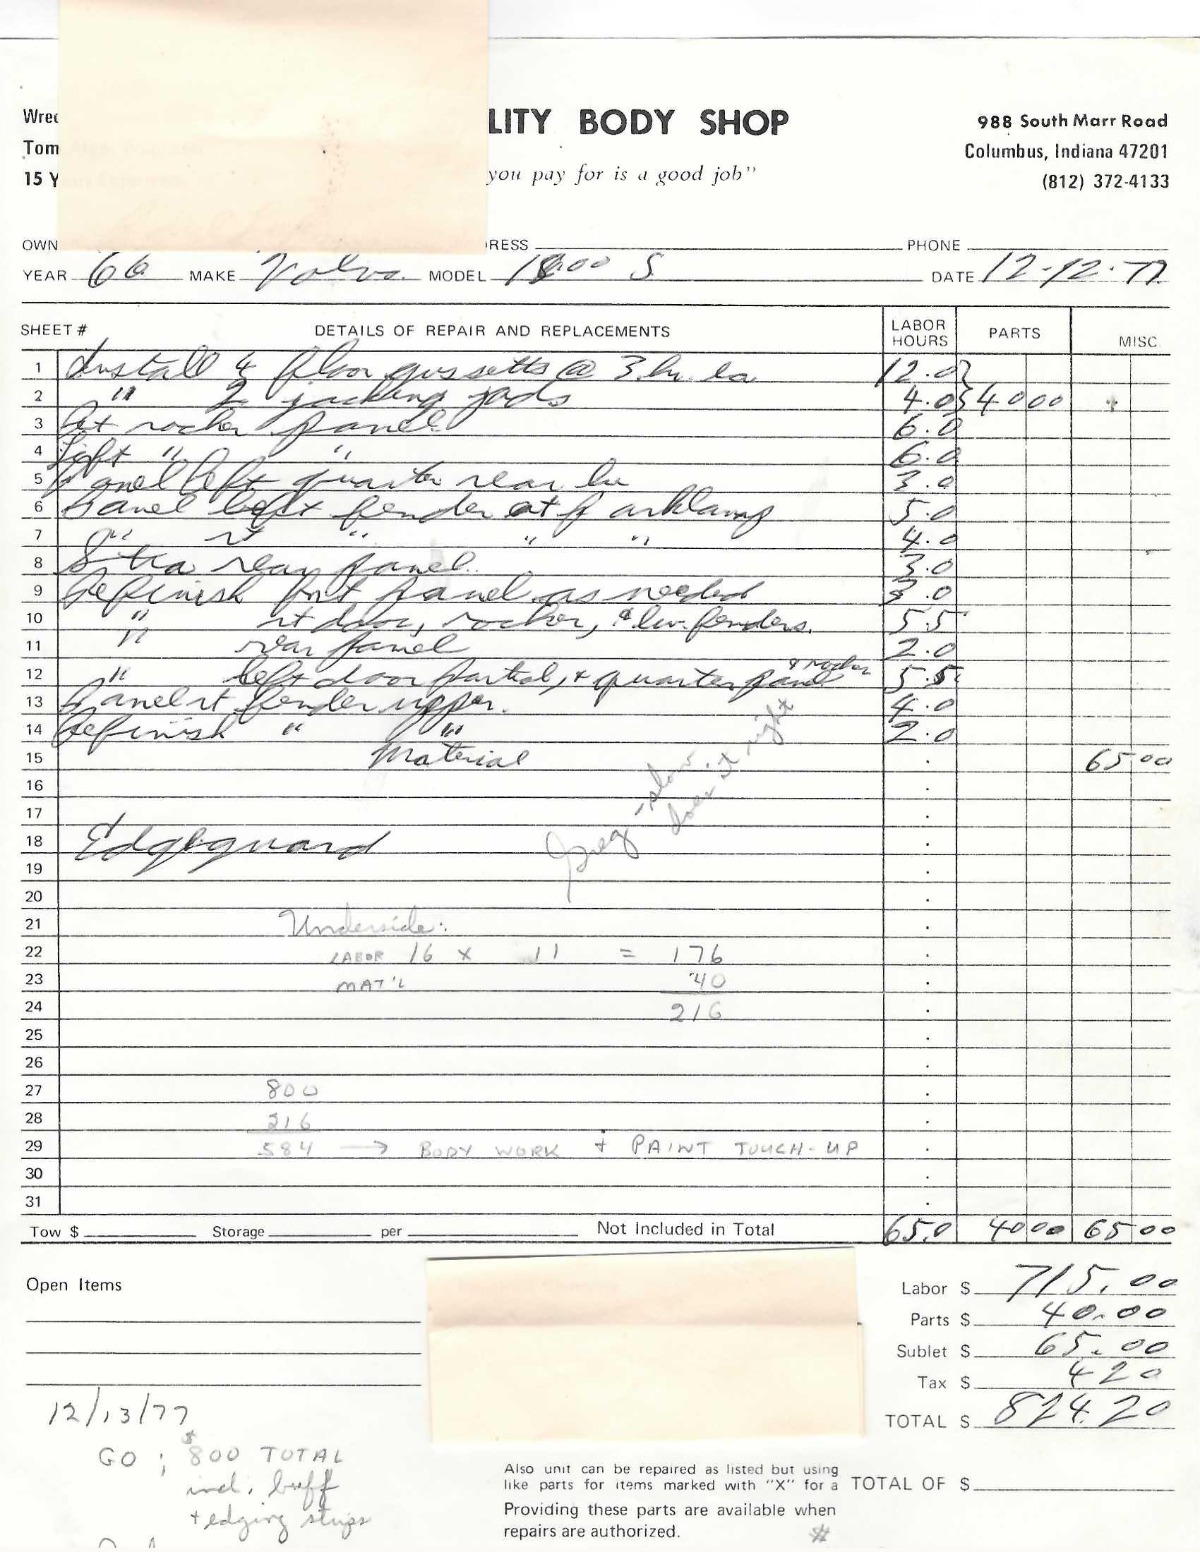 Wrec
LITY BODY SHOP
988 South Marr Road
Tom
Columbus, Indiana 47201
15 Y
you pay for is a good job"
(812) 372-4133
OWN
RESS
PHONE
YEAR 66 MAKE Volvo MODEL 1800 S DATE 12-12-77
SHEET # DETAILS OF REPAIR AND REPLACEMENTS LABOR HOURS PARTS MISC
1 Install 4 floor gussetts @ 3 hr. ea 12.0}
2 " 2 jacking pads 4.0} 40 00
3 Rt rocker panel 6.0
4 Left " " 6.0
5 Panel left quarter rear 3.0
6 Panel left fender at parklamp 5.0
7 " rt " " " 4.0
8 Stra rear panel 3.0
9 Refinish frt panel as needed 3.0
10 " rt door, rocker, & lw. fenders. 5.5
11 " rear panel 2.0
12 " left door partial, + quarter panel & rocker 5.5
13 Panel rt fender upper. 4.0
14 Refinish " " 2.0
15 Material 65 00
16
17
18 Edgeguard
Greg - slow, does it right
19
20
21 Underside:
22 LABOR 16 x 11 = 176
23 MAT'L 40
24 216
25
26
27 800
28 216
29 584 → BODY WORK + PAINT TOUCH-UP
30
31
Tow $ Storage per Not Included in Total 65.0 40 00 65 00
Open Items
Labor $ 715.00
Parts $ 40.00
Sublet $ 65.00
Tax $ 4 20
TOTAL $ 824.20
12/13/77
GO ; $800 TOTAL
incl. buff
+ edging strips
Also unit can be repaired as listed but using
like parts for items marked with "X" for a TOTAL OF $
Providing these parts are available when
repairs are authorized.